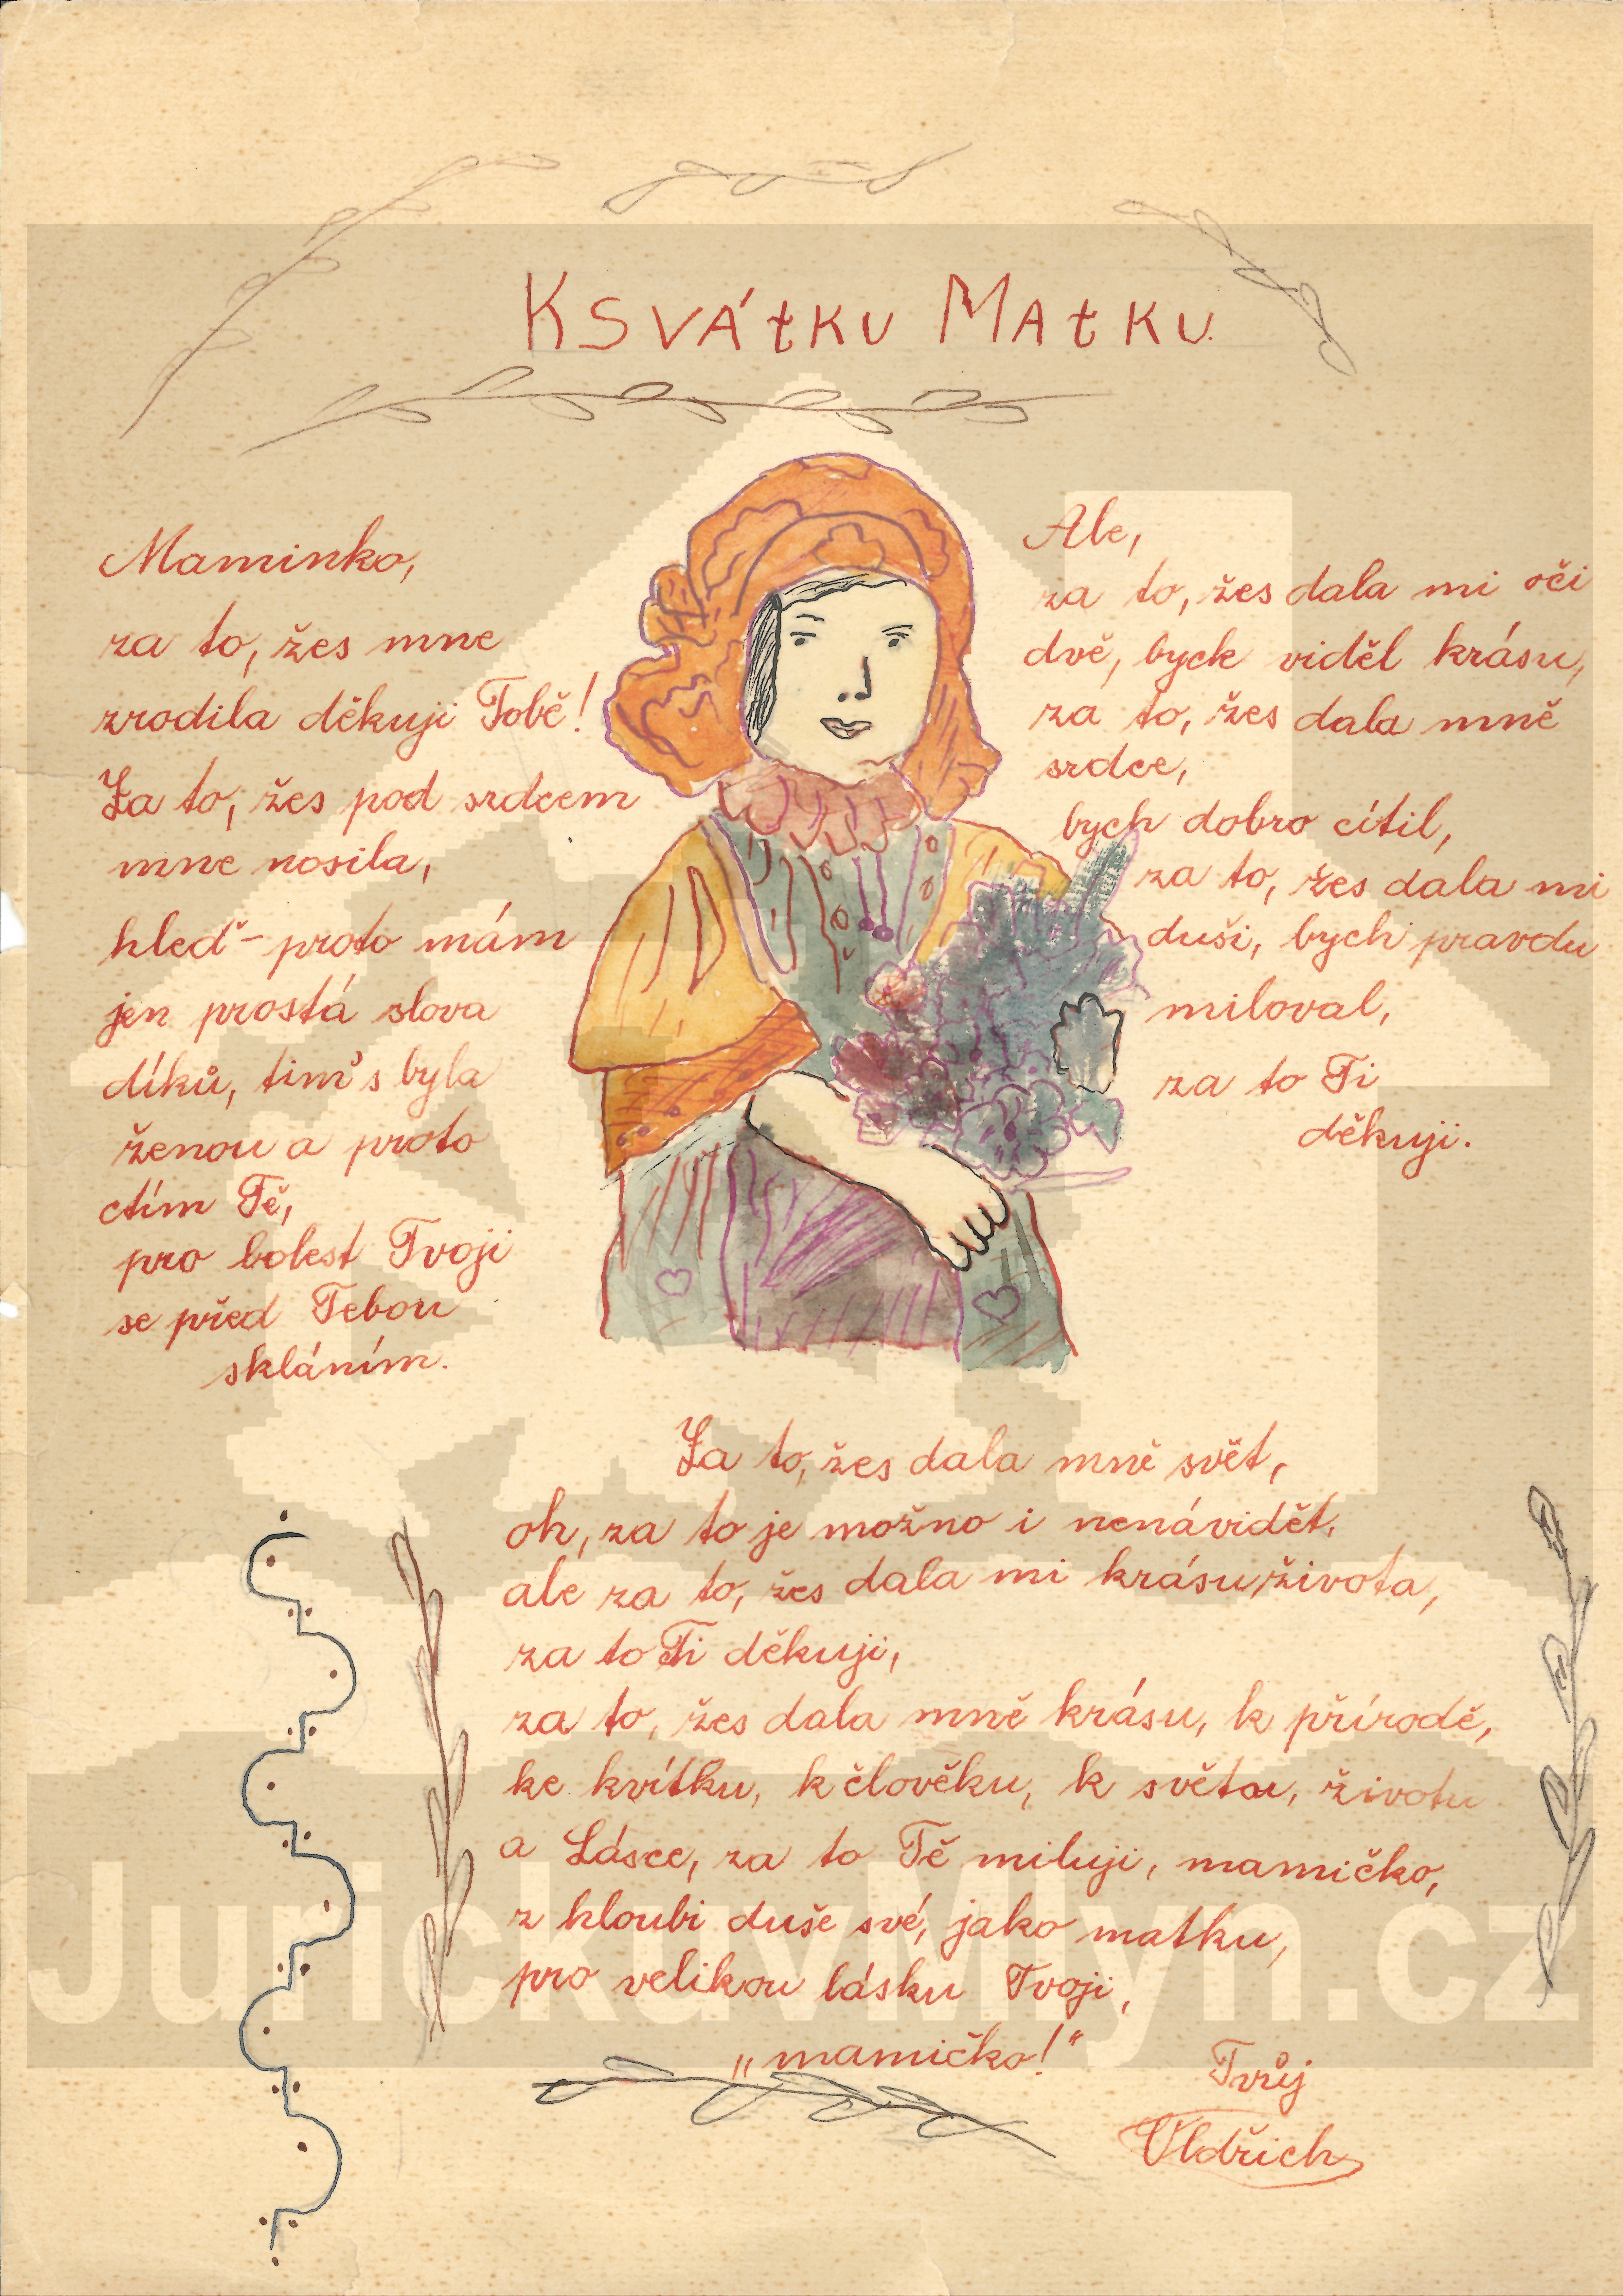 K SVÁtKU MAtKU.
Maminko,
za to, žes mne
zrodila děkuji Tobě!
Za to, žes pod srdcem
mne nosila,
hleď - proto mám
jen prostá slova
díků, tim's byla
ženou a proto
ctím Tě,
pro bolest Tvoji
se před Tebou
skláním.
Ale,
za to, žes dala mi oči
dvě, bych viděl krásu,
za to, žes dala mně
srdce,
bych dobro cítil,
za to, žes dala mi
duši, bych pravdu
miloval,
za to Ti
děkuji.
Za to, žes dala mně svět,
oh, za to je možno i nenávidět,
ale za to, žes dala mi krásu života,
za to Ti děkuji,
za to, žes dala mně krásu, k přírodě,
ke kvítku, k člověku, k světu, životu
a Lásce, za to Tě miluji, mamičko,
z hloubi duše své, jako matku,
pro velikou lásku Tvoji,
„mamičko!“
Tvůj
Oldřich
JurickuvMlyn.cz